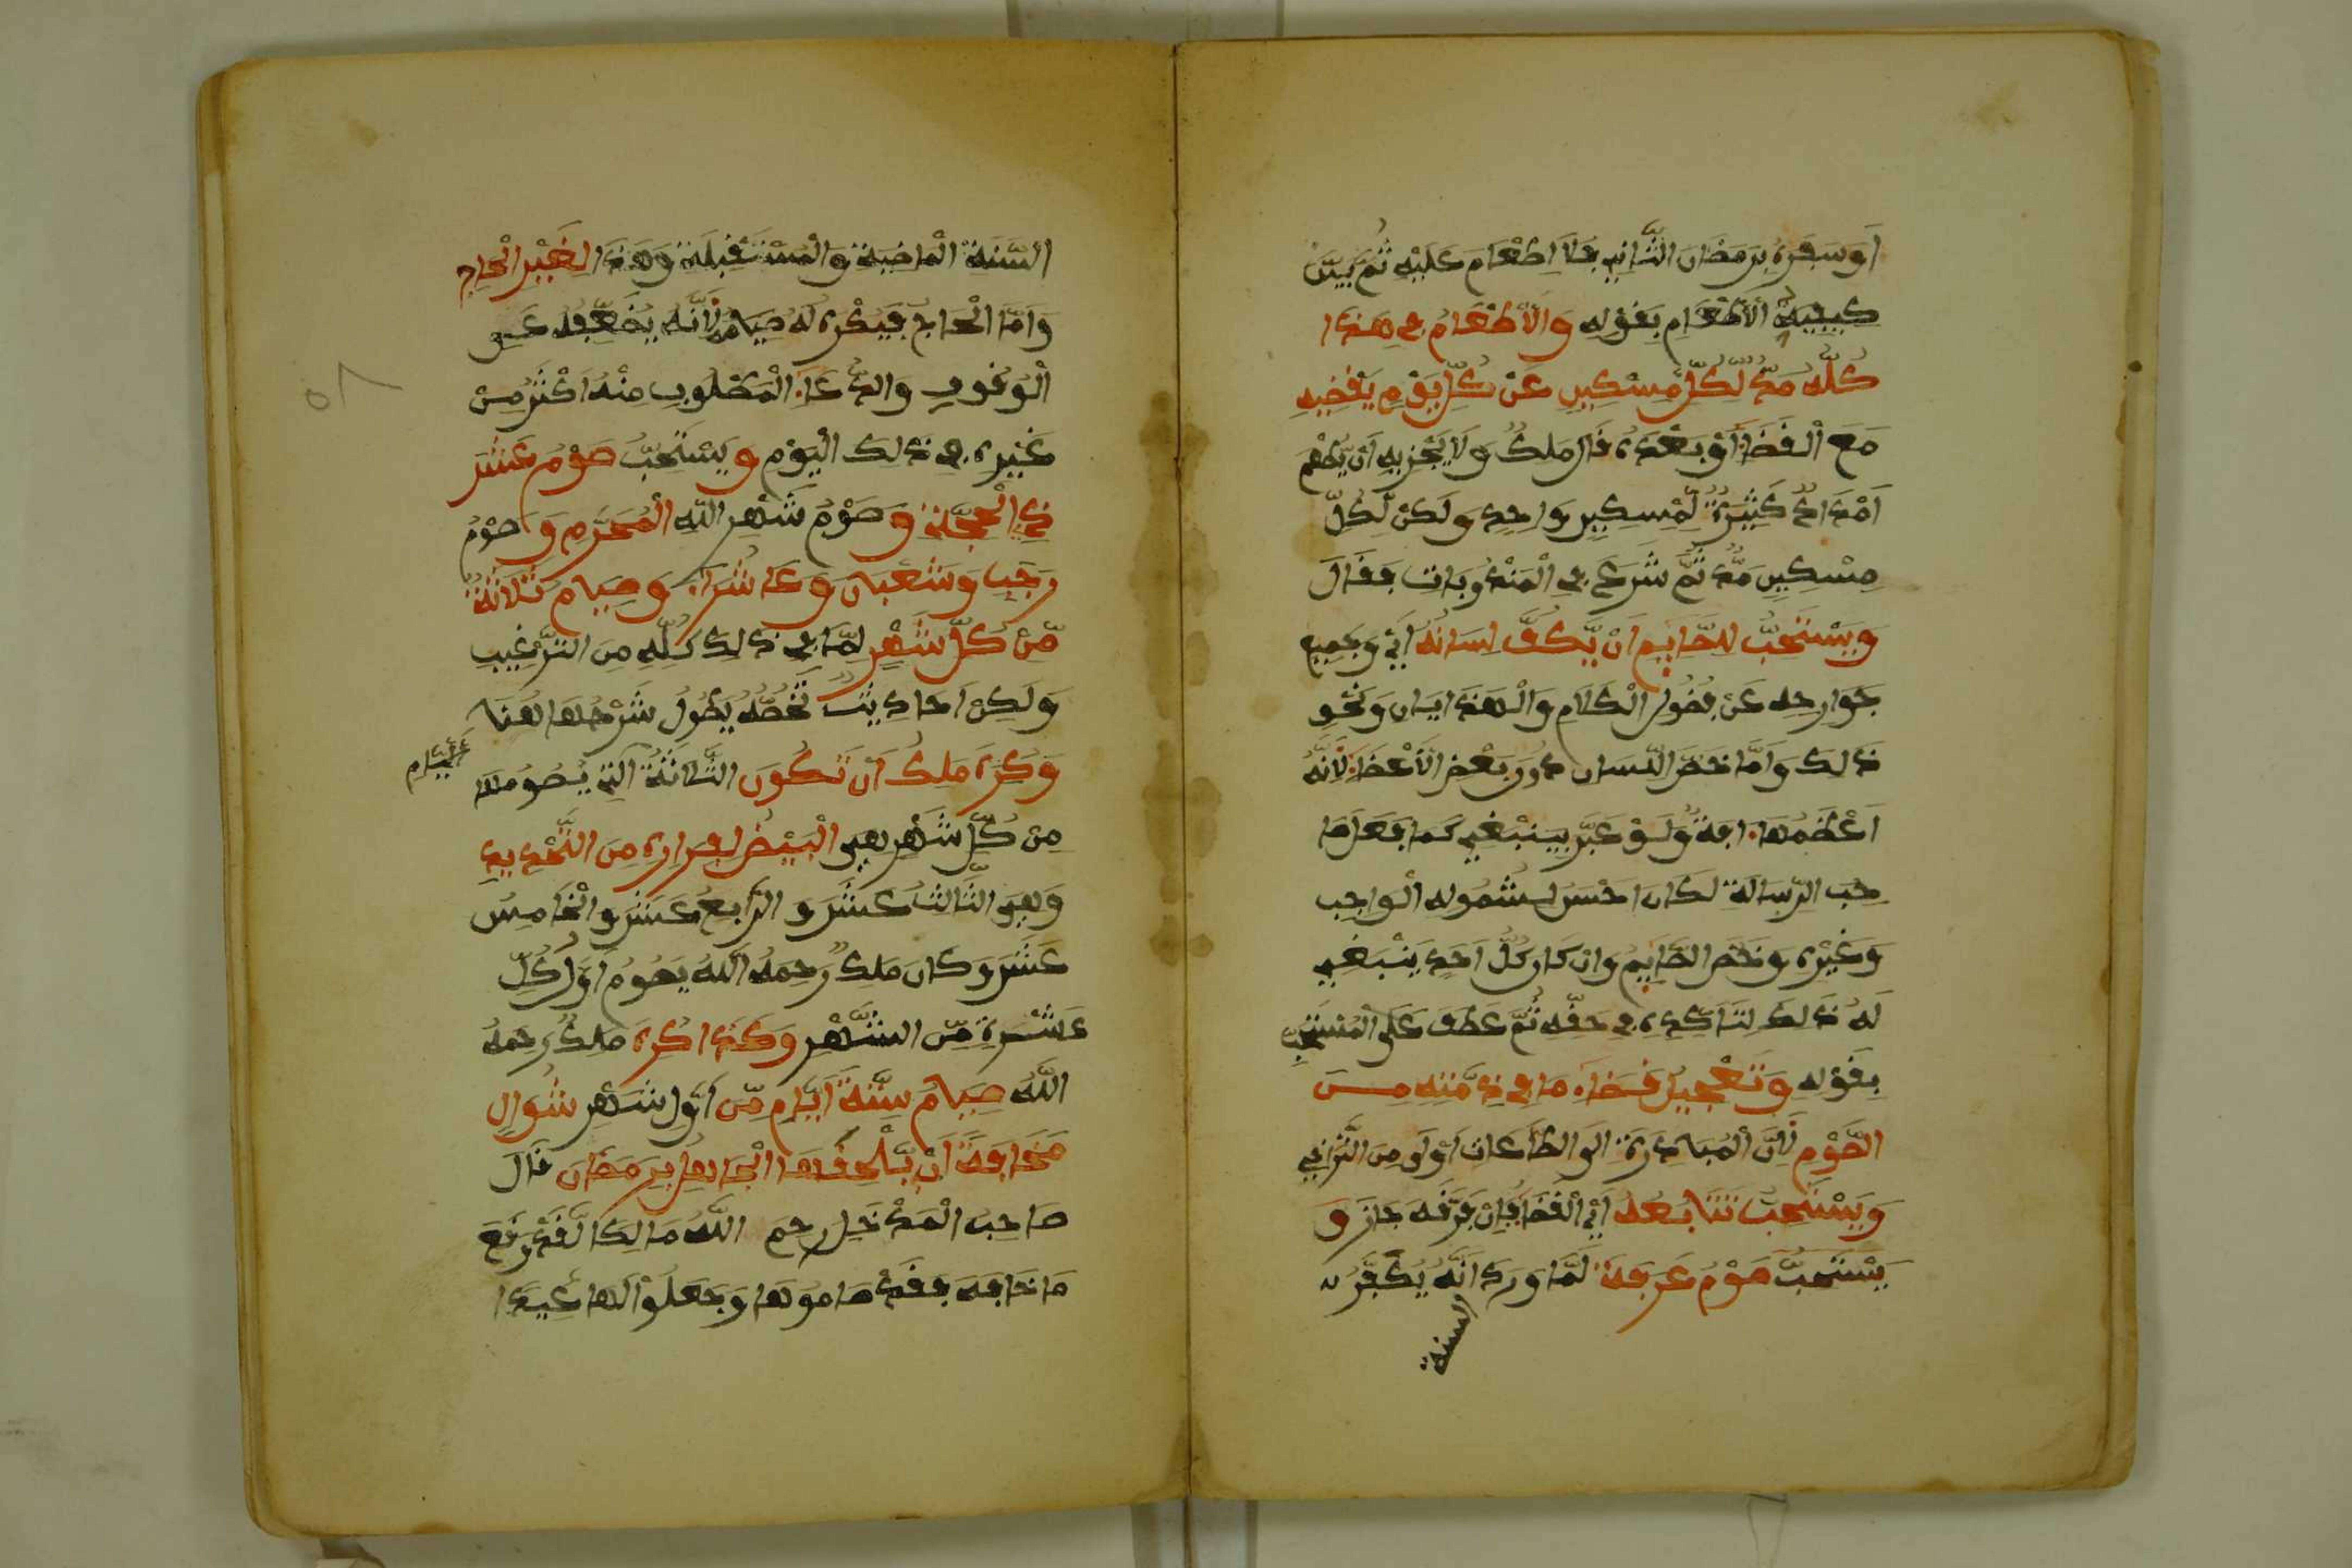 اَوْ سَفَرِهِ بِرَمَضَانَ الثَّانِي فَلَا اِطْعَامَ عَلَيْهِ ثُمَّ بَيَّنَ
كَيْفِيَّةَ الْاِطْعَامِ بِقَوْلِهِ وَالْاِطْعَامُ فِي هَذَا
كُلِّهِ مُدٌّ لِّكُلِّ مِسْكِينٍ عَنْ كُلِّ يَوْمٍ يَقْضِيهِ
مَعَ الْقَضَاءِ اَوْ بَعْدَهُ قَالَ مَلِكٌ وَلَا يُجْزِيهِ اَنْ يُّطْعِمَ
اَمْدَادًا كَثِيرَةً لِّمِسْكِينٍ وَاحِدٍ وَلَكِنْ لِّكُلِّ
مِسْكِينٍ مُدٌّ ثُمَّ شَرَعَ فِي الْمَنْدُوبَاتِ فَقَالَ
وَيُسْتَحَبُّ لِلصَّايِمِ اَنْ يَّكُفَّ لِسَانَهُ اَيْ وَجَمِيعَ
جَوَارِحِهِ عَنْ فُضُولِ الْكَلَامِ وَالْهَذَايَانِ وَنَحْوِ
ذَلِكَ وَاِنَّمَا خَصَّ اللِّسَانَ دُونَ بَعْضِ الْاَعْضَاءِ لِاَنَّهُ
اَعْظَمُهَا ءَافَةً وَلَوْ عَبَّرَ بِيَنْبَغِي كَمَا فَعَلَهَا
صَحِبُ الرِّسَالَةِ لَكَانَ اَحْسَنَ لِشُمُولِهِ الْوَاجِبَ
وَغَيْرِهِ وَخَصَّ الصَّايِمَ وَاِنْ كَانَ كُلُّ اَحَدٍ يَنْبَغِي
لَهُ ذَلِكَ لِتَاَكُّدِهِ فِي حَقِّهِ ثُمَّ عَطَفَ عَلَى الْمُسْتَحَبِّ
بِقَوْلِهِ وَتَعْجِيلُ قَضَاءِ مَا فِي ذِمَّتِهِ مِنَ
الصَّوْمِ لِاَنَّ الْمُبَادَرَةَ اِلَى الطَّاعَاتِ اَوْلَى مِنَ التَّرَاخِي
وَيُسْتَحَبُّ تَتَابُعُهُ اَيِ الْقَضَاءِ فَاِنْ فَرَّقَهُ جَازَ وَ
يُسْتَحَبُّ صَوْمُ عَرَفَةَ لِمَا وَرَدَ اَنَّهُ يُكَفِّرُ
السنة
السَّنَةَ الْمَاضِيَةَ وَالْمُسْتَقْبِلَةَ وَهَذَا لِغَيْرِ الْحَاجِّ
وَاَمَّا الْحَاجُّ فَيُكْرَهُ لَهُ صِيَامُهُ لِاَنَّهُ يُضَعِّفُهُ عَنِ
الْوُقُوفِ وَالدُّعَاءِ الْمَطْلُوبِ مِنْهُ اَكْثَرُ مِنْ
غَيْرِهِ فِي ذَلِكَ الْيَوْمِ وَيُسْتَحَبُّ صَوْمُ عَشْرِ
ذِي الْحِجَّةِ وَصَوْمُ شَهْرِ اللَّهِ الْمُحَرَّمِ وَصَوْمُ
رَجَبِ وَشَعْبَانَ وَعَاشُرَاءَ وَصِيَامُ ثَلَاثَةٍ
مِّنْ كُلِّ شَهْرٍ لِّمَا فِي ذَلِكَ كُلِّهِ مِنَ التَّرْغِيبِ
وَلَكِنْ اَحَادِيثُ تَخُصُّهُ يَطُولُ شَرْحُهَا هُنَا
وَكَرِهَ مَلِكٌ اَنْ تَكُونَ الثَّلَاثَةُ الَّتِي يَصُومُهَا
مِنْ كُلِّ شَهْرٍ هِيَ الْبِيضَ لِفِرَارِهِ مِنَ التَّحْدِيدِ
وَهِيَ الثَّالِثُ عَشَرَ وَالرَّابِعُ عَشَرَ وَالْخَامِسُ
عَشَرَ وَكَانَ مَلِكٌ رَحِمَهُ اللَّهُ يَصُومُ اَوَّلَ كُلِّ
عَشَرَةٍ مِّنَ الشَّهْرِ وَكَذَا كَرِهَ مَلِكٌ رَحِمَهُ
اللَّهُ صِيَامُ سِتَّةِ اَيَّامٍ مِّنْ اَوَّلِ شَهْرِ شَوَّالٍ
مَخَافَةَ اَنْ يُّلْحِقَهَا الْجَاهِلُ بِرَمَضَانَ قَالَ
صَاحِبُ الْمَدْخَلِ رحم اللَّهُ مَالِكًا لَّقَدْ وَقَعَ
مَا خَافَهُ فَقَدْ صَامُوهَا وَجَعَلُوا لَهَا عِيدًا